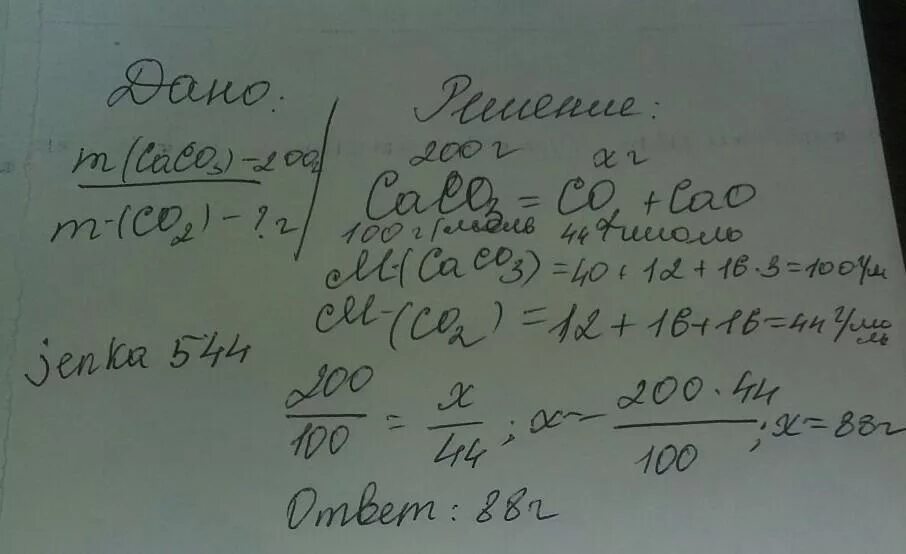 Дано:
m(CaCO₃) - 200г
m-(CO₂) - ? г
jenka 544
Решение:
200 г    x г
CaCO₃ = CO₂ + CaO
100 г/моль    44 г/моль
M-(CaCO₃) = 40 + 12 + 16·3 = 100 г/м
M-(CO₂) = 12 + 16 + 16 = 44 г/моль
200/100 = x/44 ; x = 200·44/100 ; x = 88г
Ответ: 88г